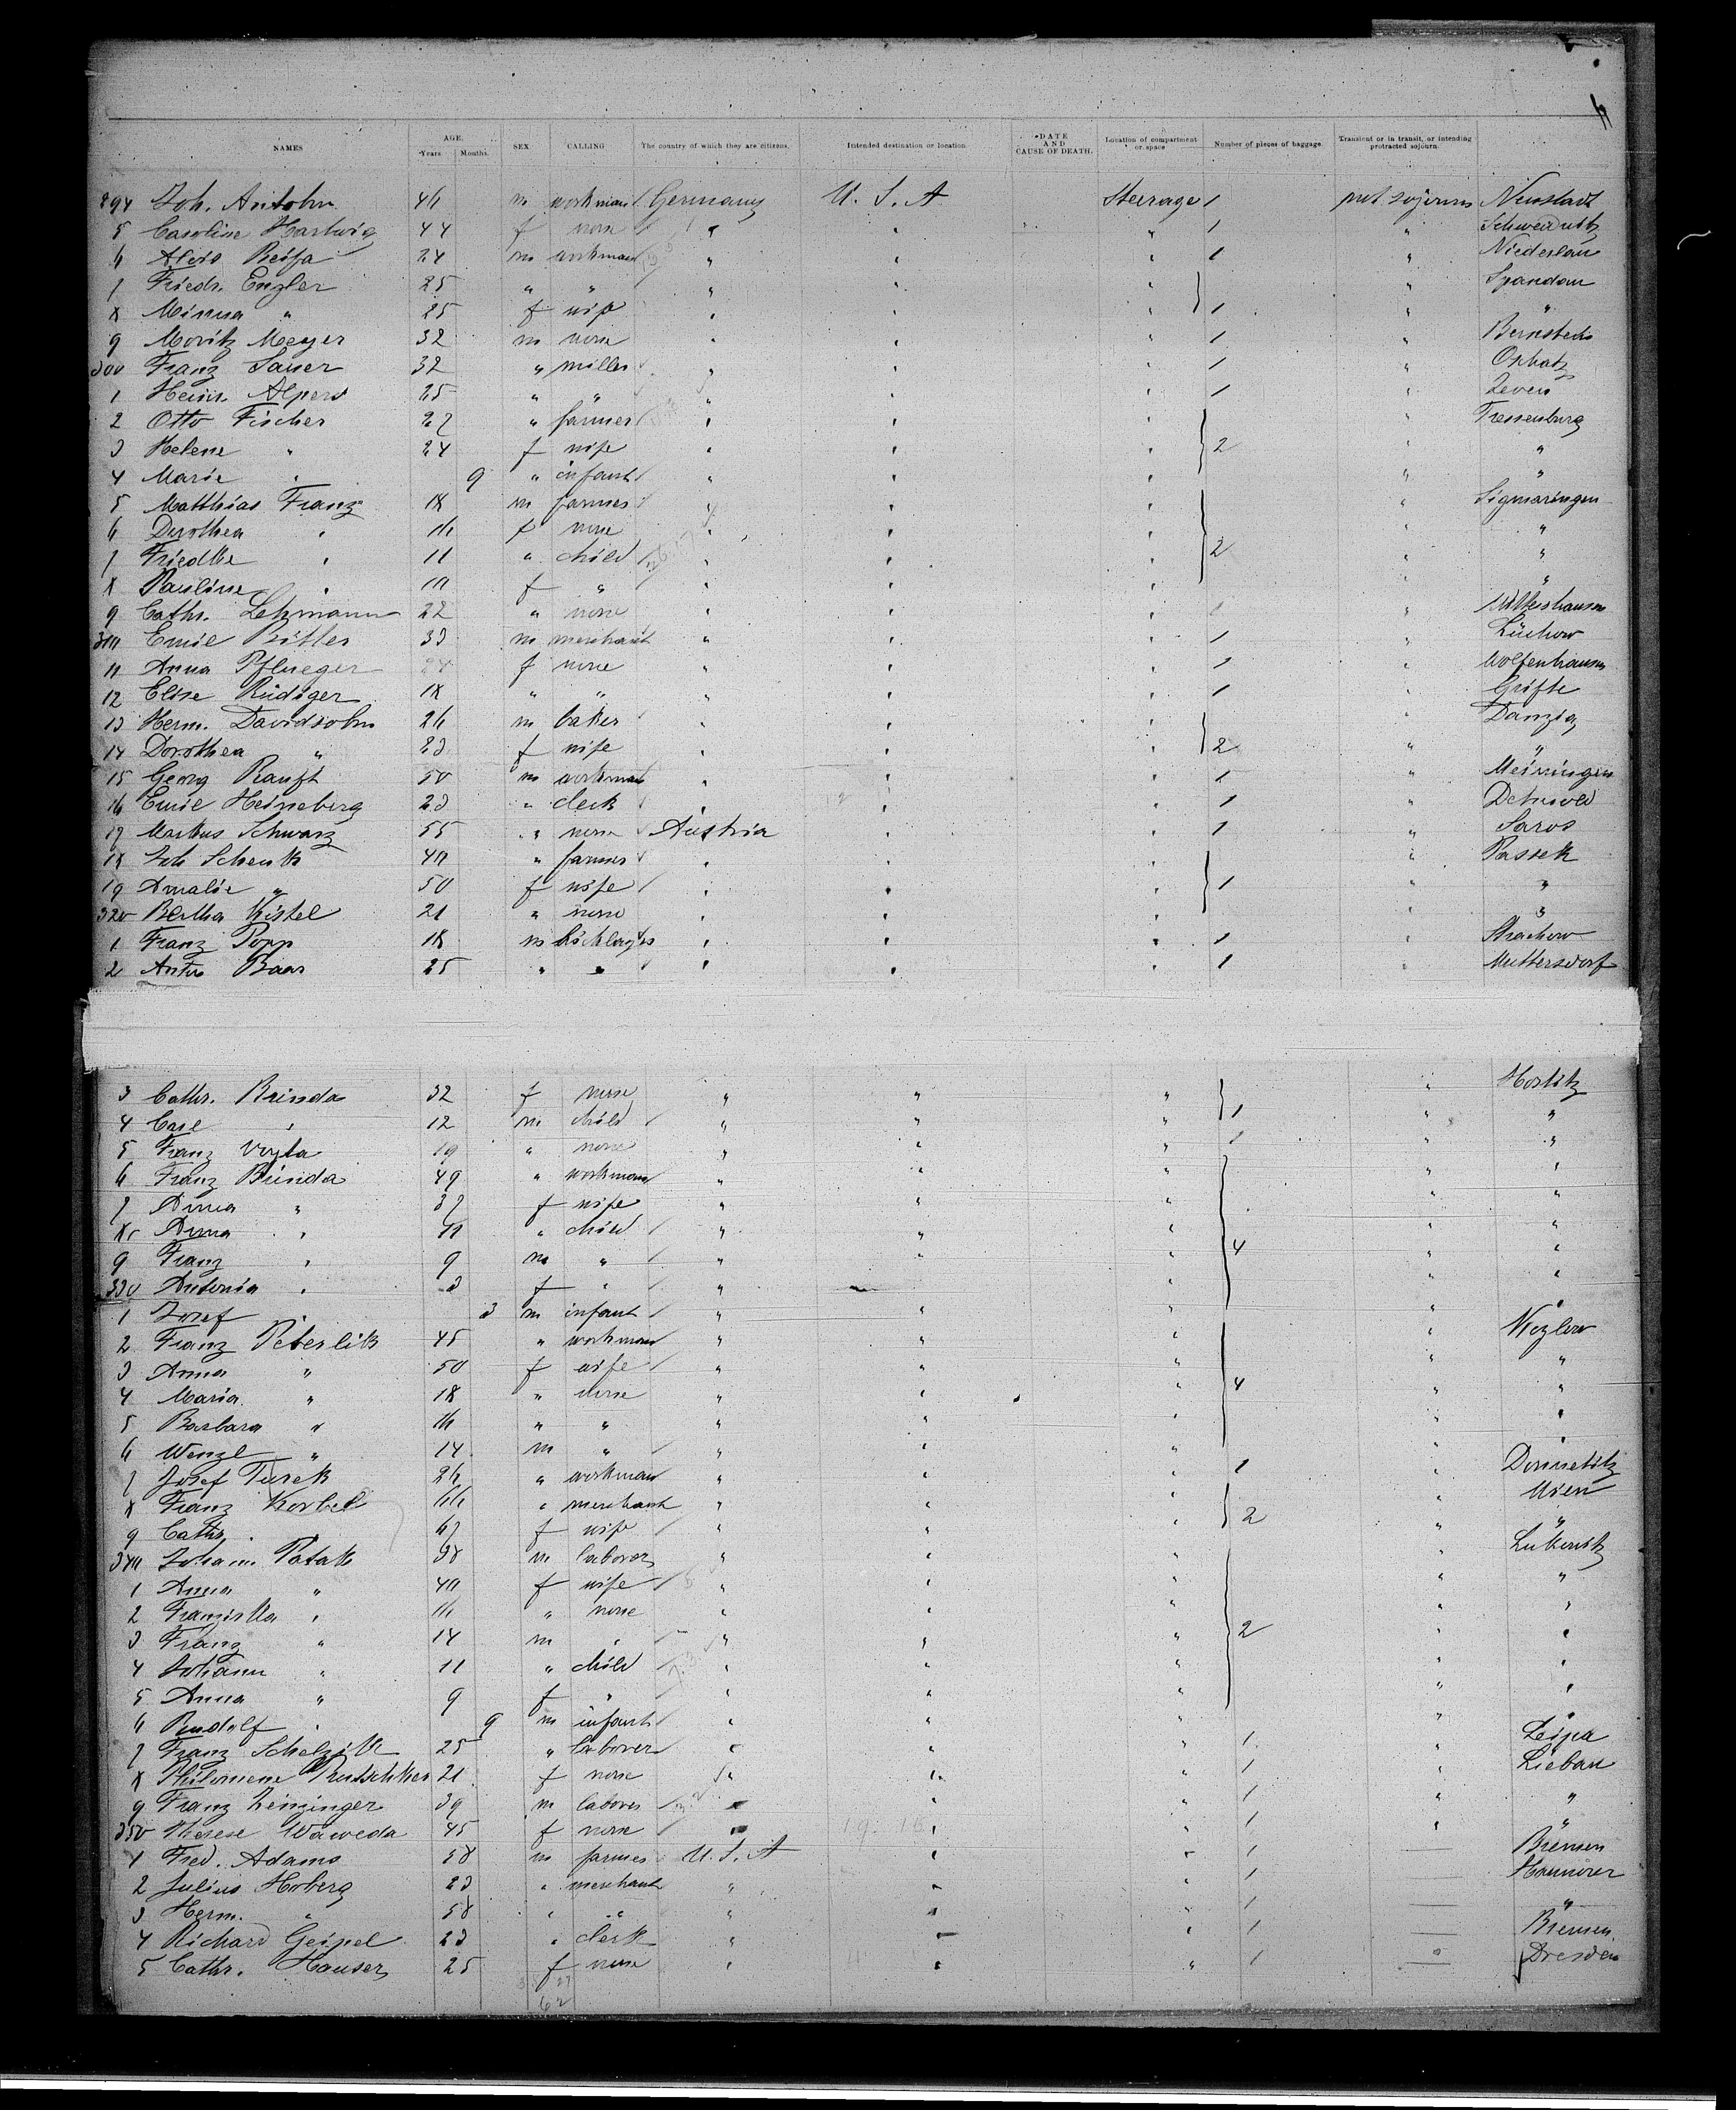 NAMES AGE. Years. Months. SEX CALLING The country of which they are citizens. Intended destination or location. DATE AND CAUSE OF DEATH. Location of compartment or space Number of pieces of baggage. Transient or in transit, or intending protracted sojourn.
294 Joh. Antohn 46 m workman Germany U. S. A Steerage 1 prot. sojourn Neustadt
5 Caroline Hartwig 44 f none " " " 1 "
6 Alois 24 m workman " " " 1 "
7 Friedr. Engler 25 " " " " " " Spandau
8 Minna " 25 f wife " " " 1 "
9 Moritz Meyer 32 m none " " " 1 " Bernstein
300 Franz Sauer 32 " miller " " " 1 " Oschatz
1 Heinr. Alpers 25 " " " " " 1 " Zeven
2 Otto Fischer 27 " farmer " " " "
3 Helene " 24 f wife " " " 2 " "
4 Marie " 9 " infant " " " " "
5 Matthias Franz 18 m farmer " " " " Sigmaringen
6 Dorothea " 16 f none " " " " "
7 Friedke " 11 " child " " " 2 " "
8 Pauline " 10 f " " " " " "
9 Cathr. Lehmann 22 " none " " " 1 "
310 Emil Ritter 33 m merchant " " " 1 " Lüchow
11 Anna Pflueger 24 f none " " " 1 " Wolfenhausen
12 Elise Rüdiger 18 " " " " " 1 " Grifte
13 Herm. Davidsohn 26 m baker " " " " Danzig
14 Dorothea " 23 f wife " " " 2 " "
15 Georg Ranft 50 m workman " " " 1 " Meiningen
16 Emil Heineberg 23 " clerk " " " 1 " Detmold
17 Markus Schwarz 55 " none Austria " " 1 " Saros
18 Joh Schenk 40 " farmer " " " " Passek
19 Amalie " 50 f wife " " " 1 " "
320 Bertha Kistel 21 " none " " " " "
1 Franz Popp 18 m " " " 1 " Strachow
2 Anton Baar 25 " " " " " 1 " Muttersdorf
3 Cathr. Brinda 32 f none " " " " Horlitz
4 Carl " 12 m child " " " 1 " "
5 Franz Voyta 19 " none " " " 1 " "
6 Franz Brinda 49 " workman " " " " "
7 Anna " 37 f wife " " " " "
8 Anna " 11 " child " " " " "
9 Franz " 9 m " " " " 4 " "
330 Antonia " 3 f " " " " "
1 Josef " 3 m infant " " " " "
2 Franz Peterlik 45 " workman " " " " Kozlow
3 Anna " 50 f wife " " " " "
4 Maria " 18 " none " " " 4 " "
5 Barbara " 16 " " " " " " "
6 Wenzl " 14 m " " " " " "
7 Josef Turek 26 " workman " " " 1 "
8 Franz Korbel 66 " merchant " " " " Wien
9 Cathr. " 67 f wife " " " 2 " "
340 Johann Patak 38 m laborer " " " "
1 Anna " 40 f wife " " " " "
2 Franziska " 16 " none " " " " "
3 Franz " 14 m " " " " 2 " "
4 Johann " 11 " child " " " " "
5 Anna " 9 f " " " " " "
6 Rudolf " 9 m infant " " " " "
7 Franz 25 " laborer " " " 1 " Leipa
8 Philomene Prutschker 21 f none " " " 1 " Liebau
9 Franz Zeisinger 39 m laborer " " " 1 " "
350 Therese Waweda 45 f none " " " 1 " "
1 Fred. Adams 58 m farmer U. S. A " " 1 — Bremen
2 Julius Hoberg 23 " merchant " " " 1 — Hannover
3 Herm. " 58 " " " " " 1 — "
4 Richard Geipel 23 " clerk " " " 1 — Bremen
5 Cathr. Hauser 25 f none " " " 1 — Dresden
62